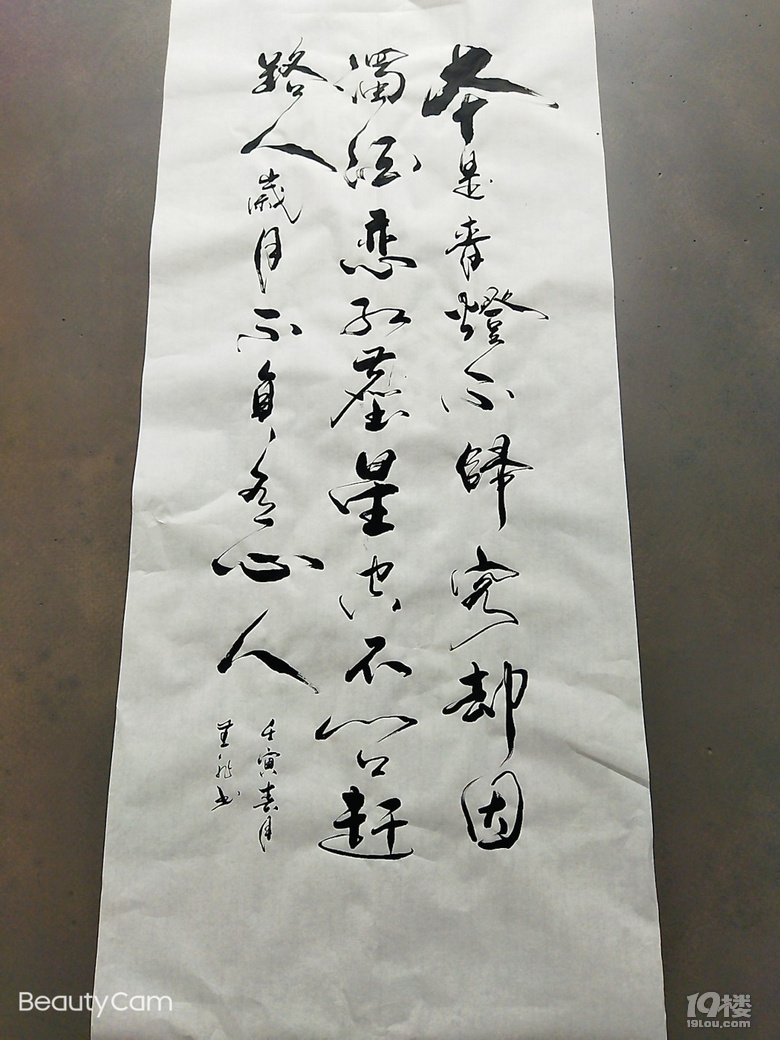 本是青燈不歸客却因
濁酒恋红塵星空不问赶
路人歲月不負有心人
壬寅春月
书
BeautyCam
19楼
19lou.com